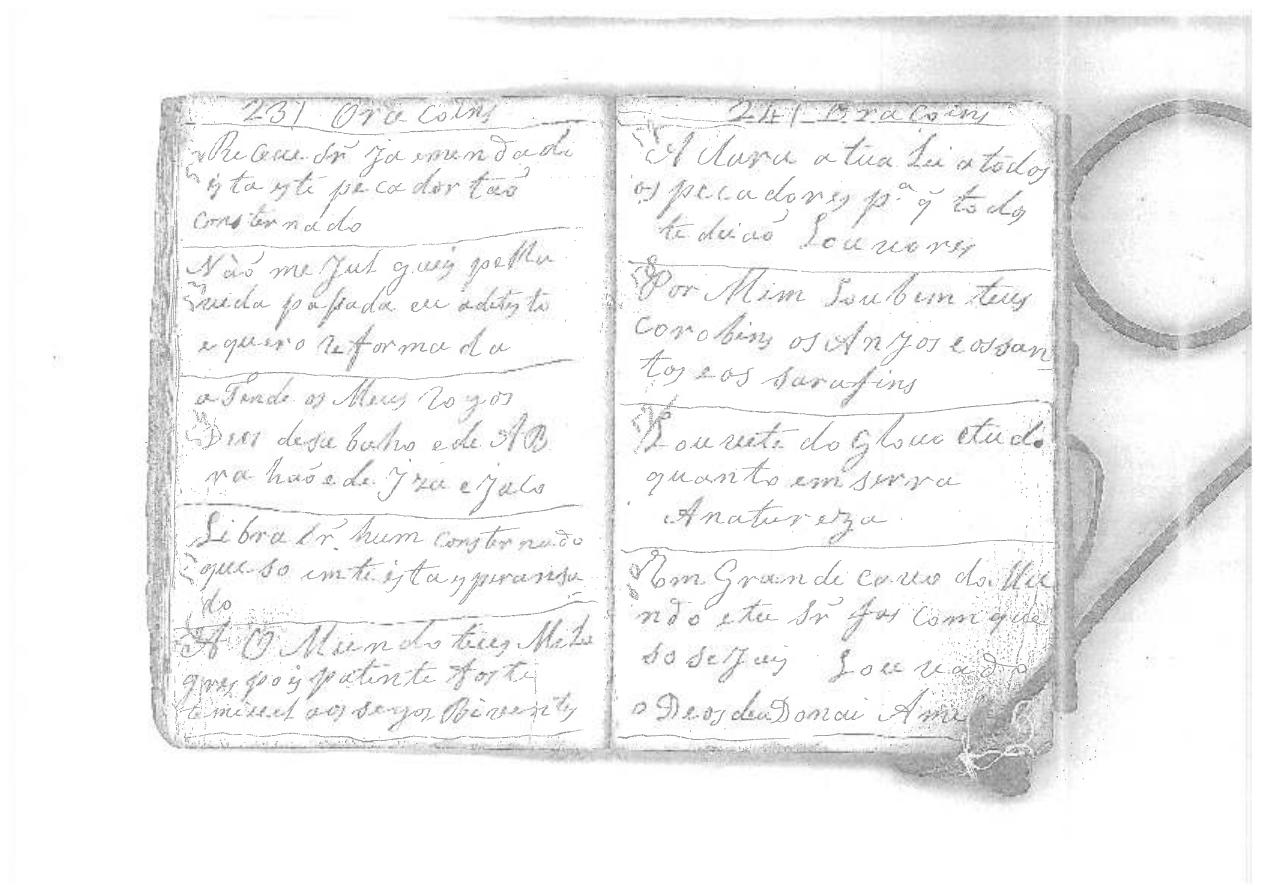 231 Oracoins
Receve Sr̃ Ja emendade
esta este pecador taõ
consternado
Naõ me Julgueis pella
vida pasada eu adetesto
e quero reformada
aTende os Meus rogos
Deos desabaho ede AB
rahaõ ede Izá e Jaco
Libra Sr̃. hum consternado
que so emte esta esperansa
do
A O Mundo teus Mela
gres pois patente forte
temivel aos segos Biventes
241 Oracoins
Aclara atua Lei atodos
os pecadores pª q̃ todos
te deiaõ Louvores
Por Mim Loubem teus
corobins os Anjos eossan
tos eos sarafins
Louvete do Glovo etudo
quanto emserra
Anatureza
Em Grande covo do Mu
ndo etu Sr̃ fas comque
so seJais Louvado
o Deos deuDonai Ame